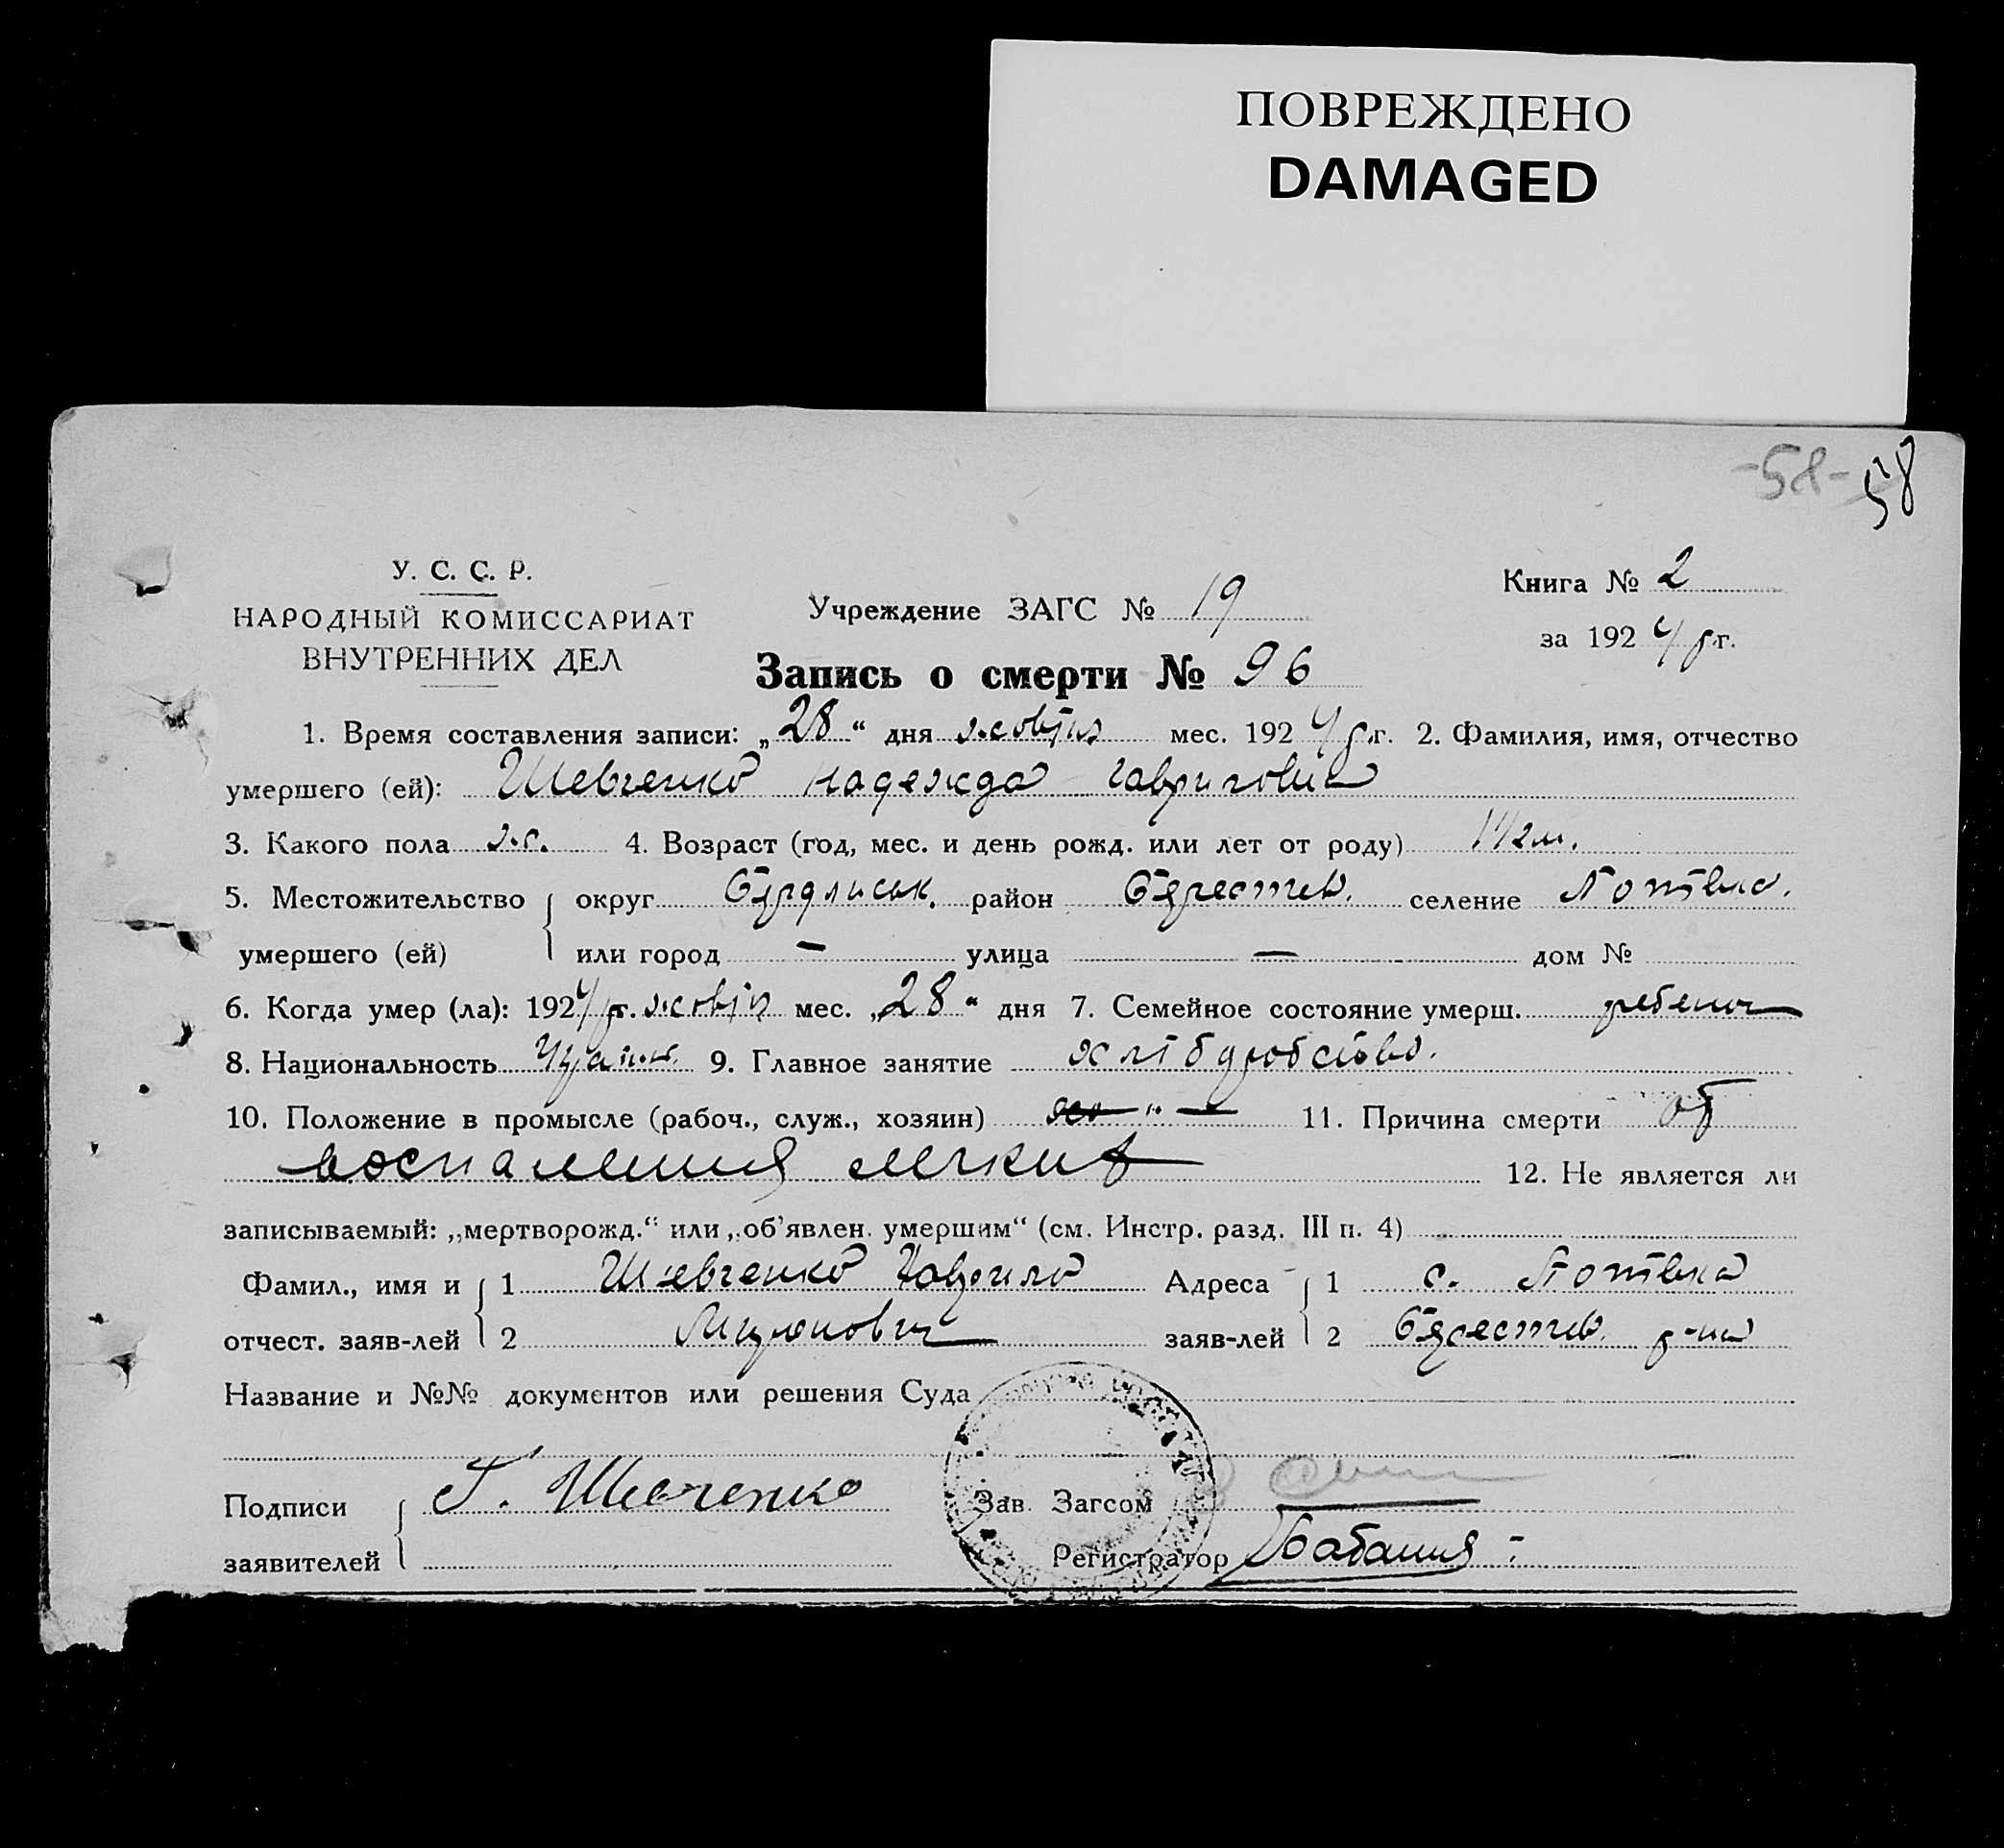 ПОВРЕЖДЕНО
DAMAGED
-58- 58
У. С. С. Р.
НАРОДНЫЙ КОМИССАРИАТ
ВНУТРЕННИХ ДЕЛ
Учреждение ЗАГС № 19
Книга № 2
за 1924 р г.
Запись о смерти № 96
1. Время составления записи: „28“ дня жовтня мес. 1924 р. г. 2. Фамилия, имя, отчество
умершего (ей): Шевченко Надежда Гавриловна
3. Какого пола ж. 4. Возраст (год, мес. и день рожд. или лет от роду)
5. Местожительство округ Бердянськ. район Берестов. селение
умершего (ей) или город — улица — дом №
6. Когда умер (ла): 1924 р. г. жовтня мес. „28“ дня 7. Семейное состояние умерш. ребенок
8. Национальность 9. Главное занятие хліборобство.
10. Положение в промысле (рабоч., служ., хозяин) -"- 11. Причина смерти от
воспаления легких
12. Не является ли
записываемый: „мертворожд.“ или „об'явлен. умершим“ (см. Инстр. разд. III п. 4)
Фамил., имя и 1 Шевченко Гаврило Адреса 1 с.
отчест. заяв-лей 2 Миронович заяв-лей 2 Берестов. р-на
Название и №№ документов или решения Суда
Подписи Г. Шевченко Зав. Загсом
заявителей Регистратор